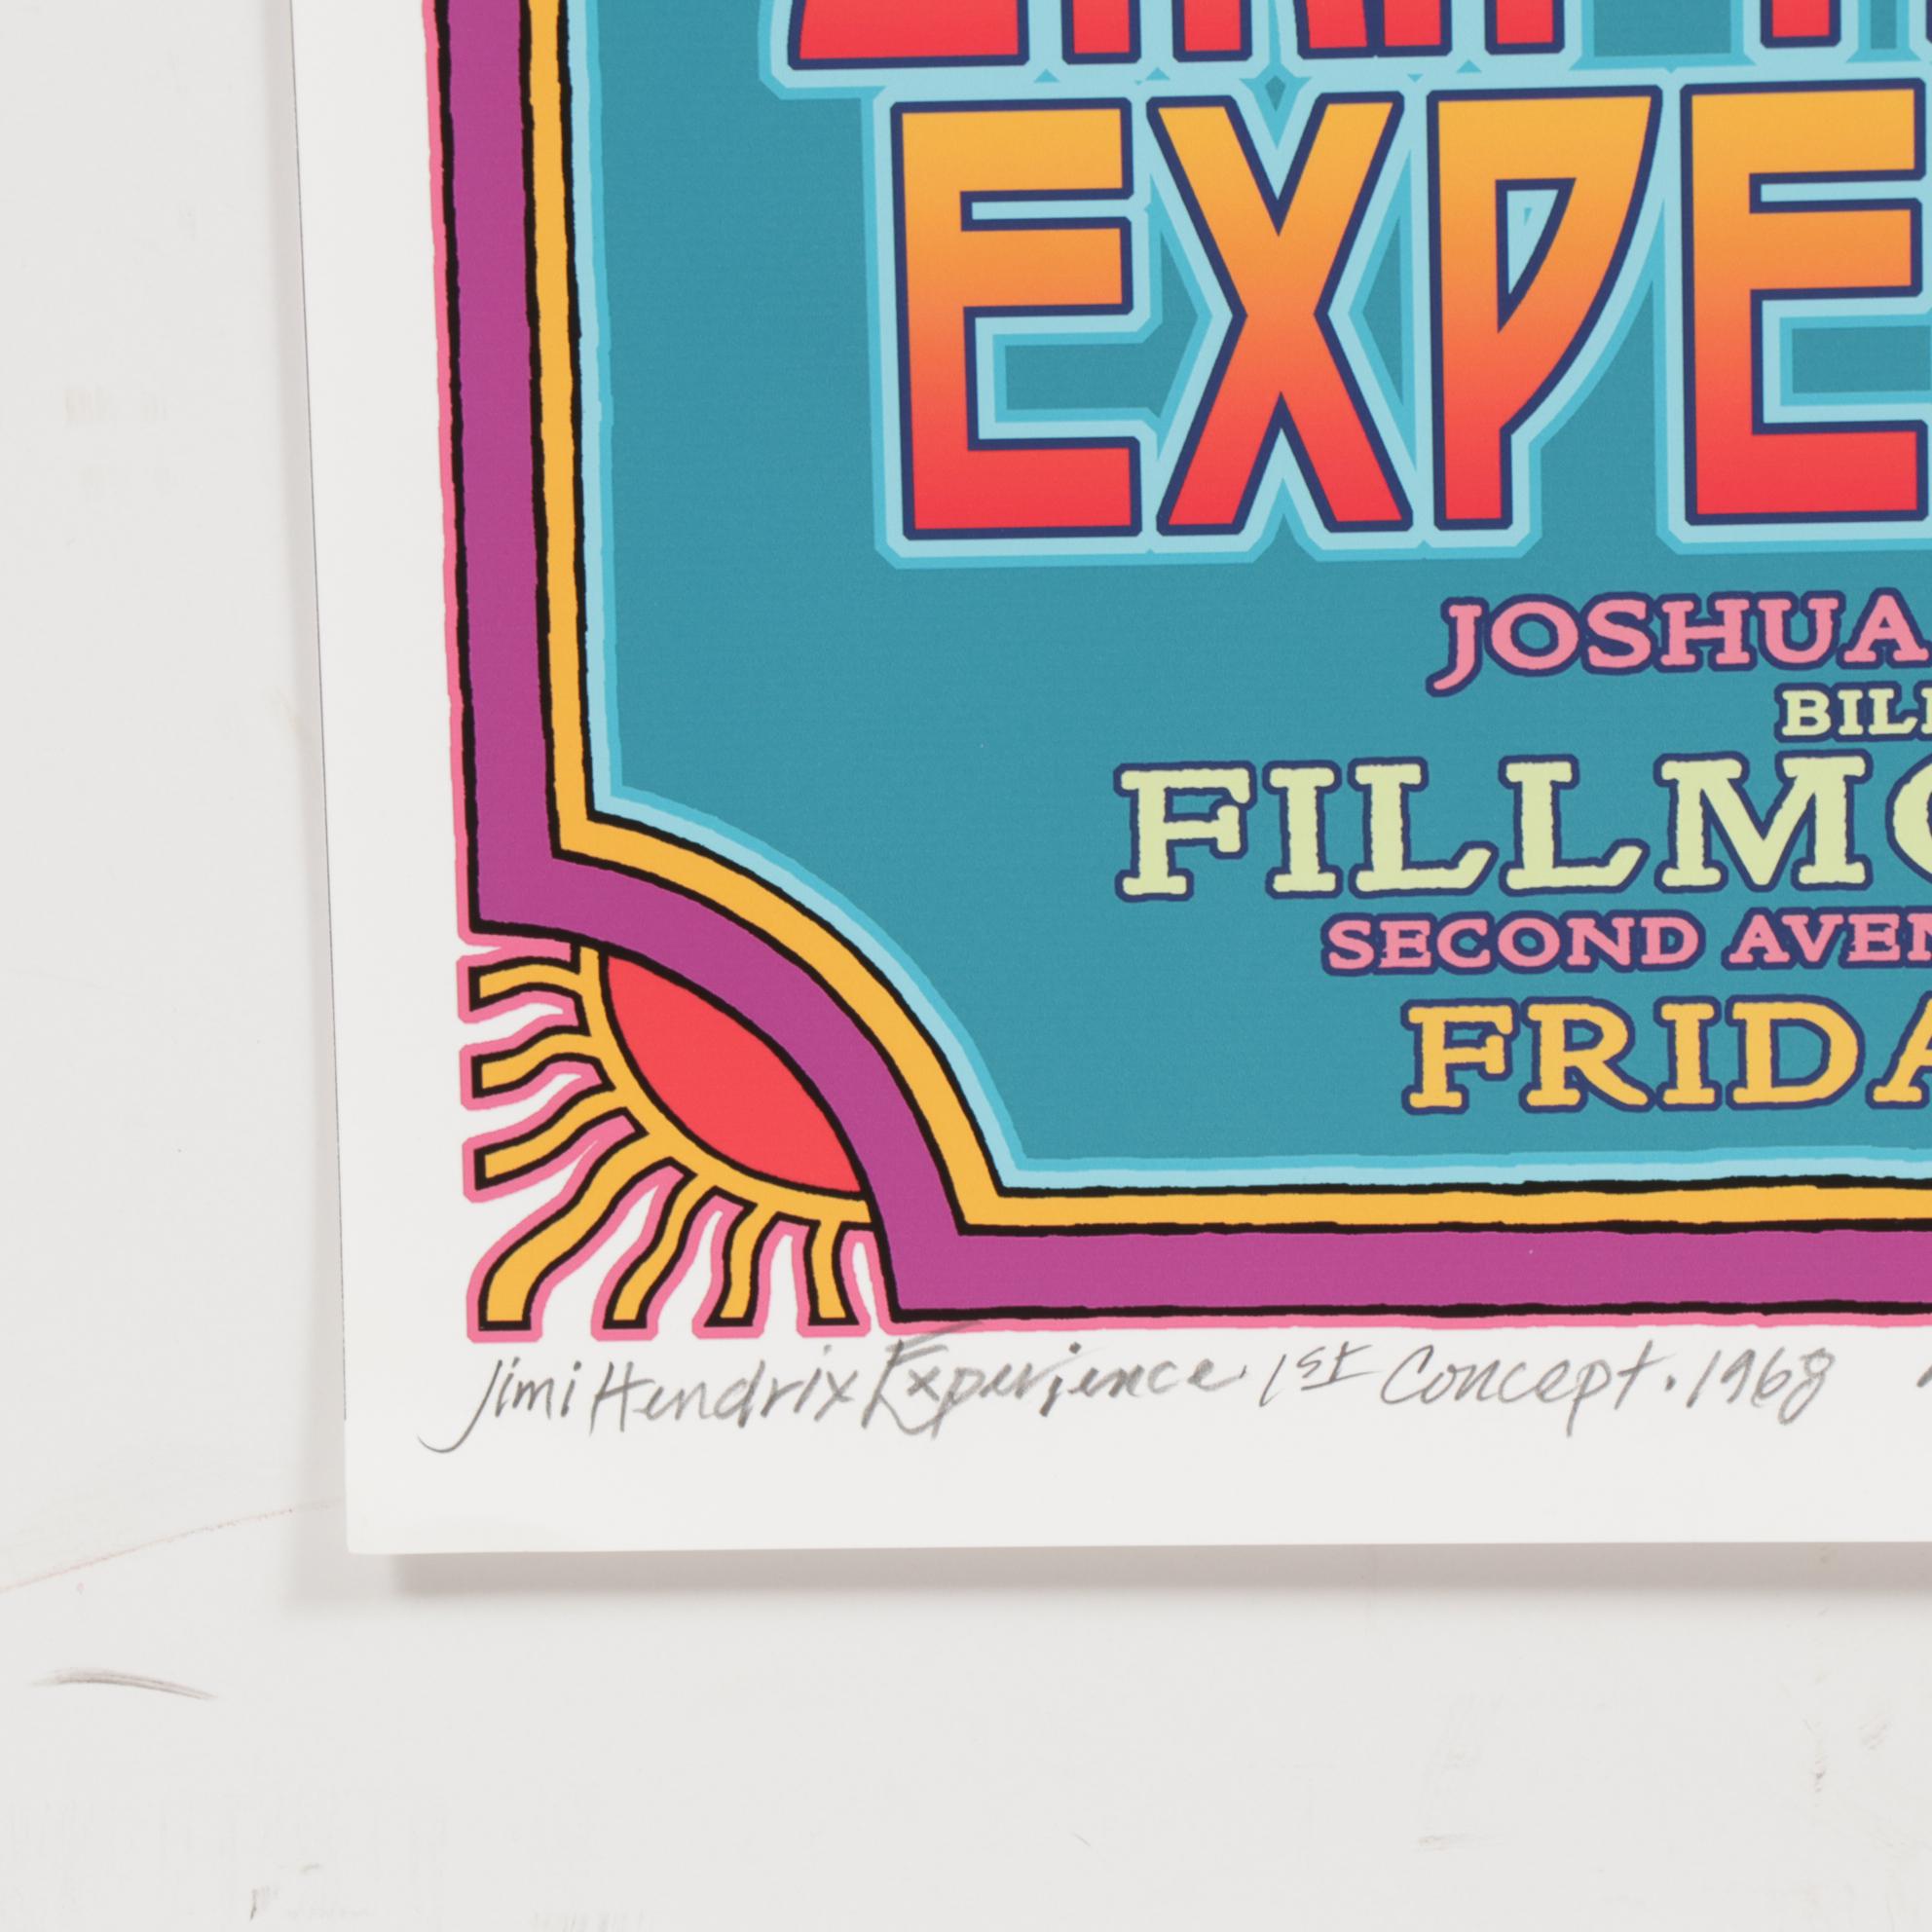 EXPE
JOSHUA
BILL
FILLMO
SECOND AVEN
FRIDA
Jimi Hendrix Experience. 1st Concept. 1968